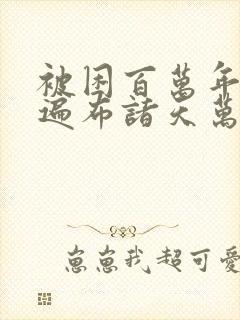 被困百萬年
遍布諸天萬
崽崽我超可愛